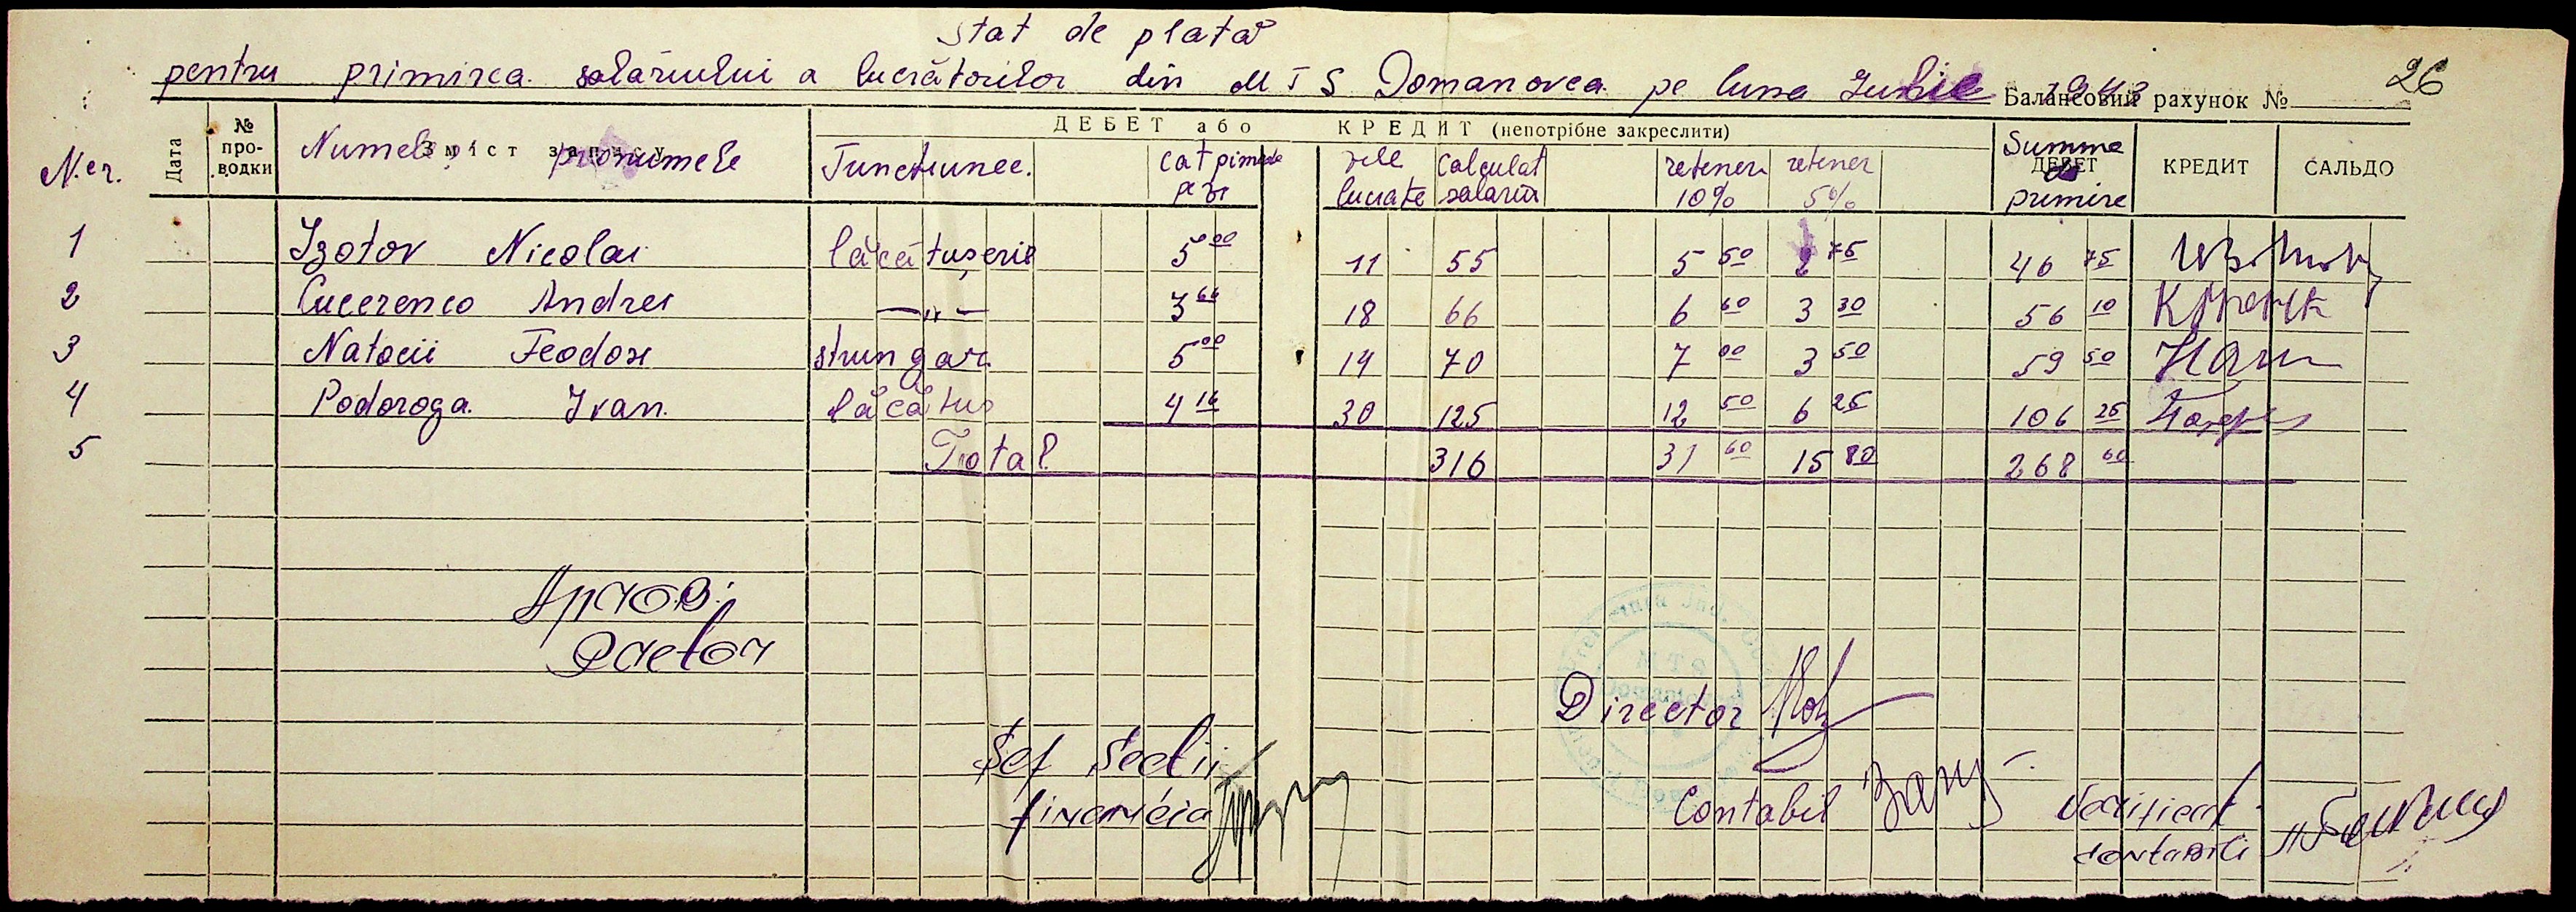 Stat de plată
pentru primirea salariului a lucrătorilor din MTS Domanovca pe luna Iunie 1943
26
Балансовий рахунок №
ДЕБЕТ або КРЕДИТ (непотрібне закреслити)
N.cr. Дата № про-водки Зміст запису Numele, pronumele Functiunee. cat pimeste pe zi zile lucrate calculat salariu reteneri 10% retener 5% Summa de primire ДЕБЕТ КРЕДИТ САЛЬДО
1 Izotov Nicolai lăcătușerie 5 00 11 55 5 50 2 75 46 75
2 Cucerenco Andrei —"— 3 66 18 66 6 60 3 30 56 10
3 Natocii Feodosi strungar 5 00 14 70 7 00 3 50 59 50
4 Podoroga Ivan. lăcătus 4 16 30 125 12 50 6 25 106 25
5 Total 316 31 60 15 80 268 60
Aprob:
Pretor
MTS
Director
Șef Secții
financiar
Contabil
Verificat
contabil